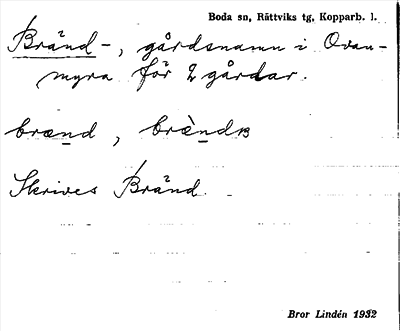 Boda sn, Rättviks tg, Kopparb. l.
Bränd-, gårdsnamn i Ovan-
myra för 2 gårdar.
brænd, brænd
Skrives Bränd.
Bror Lindén 1932